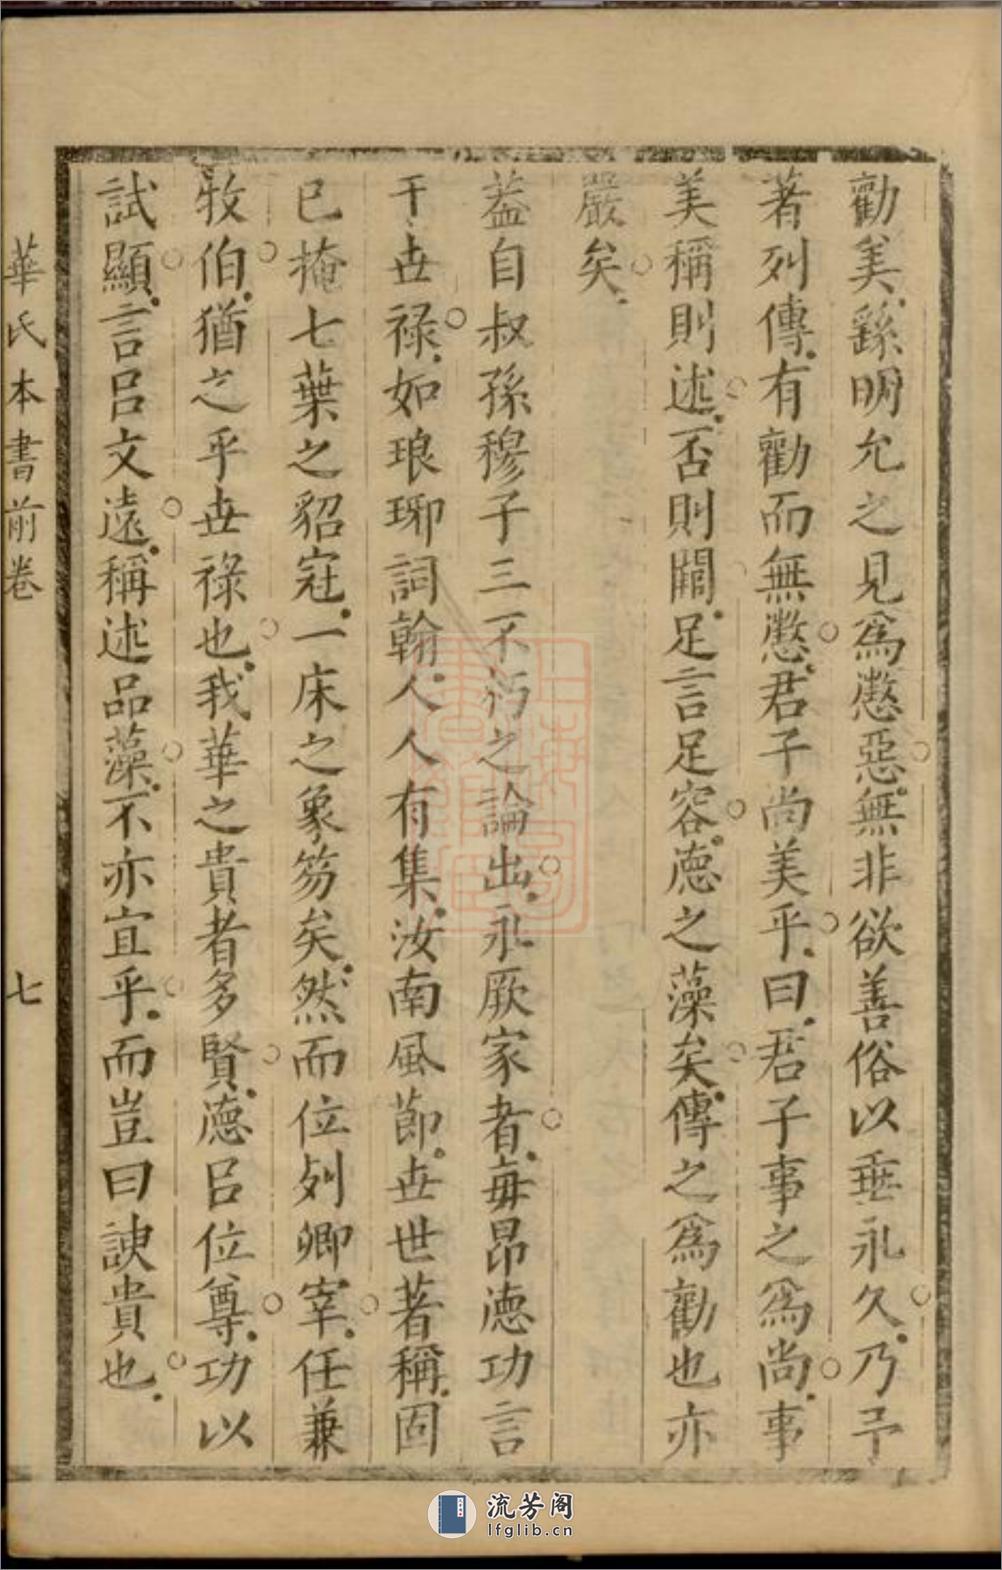 勸美繇明允之見爲懲惡無非欲善俗以垂永久乃予
著列傳有勸而無懲君子尚美乎曰君子事之爲尚事
美稱則述否則闕足言足容德之藻矣傳之爲勸也亦
嚴矣
葢自叔孫穆子三不朽之論出永厥家者毋昂德功言
于世祿如琅琊詞翰人人有集汝南風節世世著稱固
已掩七葉之貂冠一床之象笏矣然而位列卿宰任兼
牧伯猶之乎世祿也我華之貴者多賢德㠯位尊功以
試顯言㠯文遠稱述品藻不亦宜乎而豈曰諛貴也
華氏本書前卷
七
流芳阁
lfglib.cn